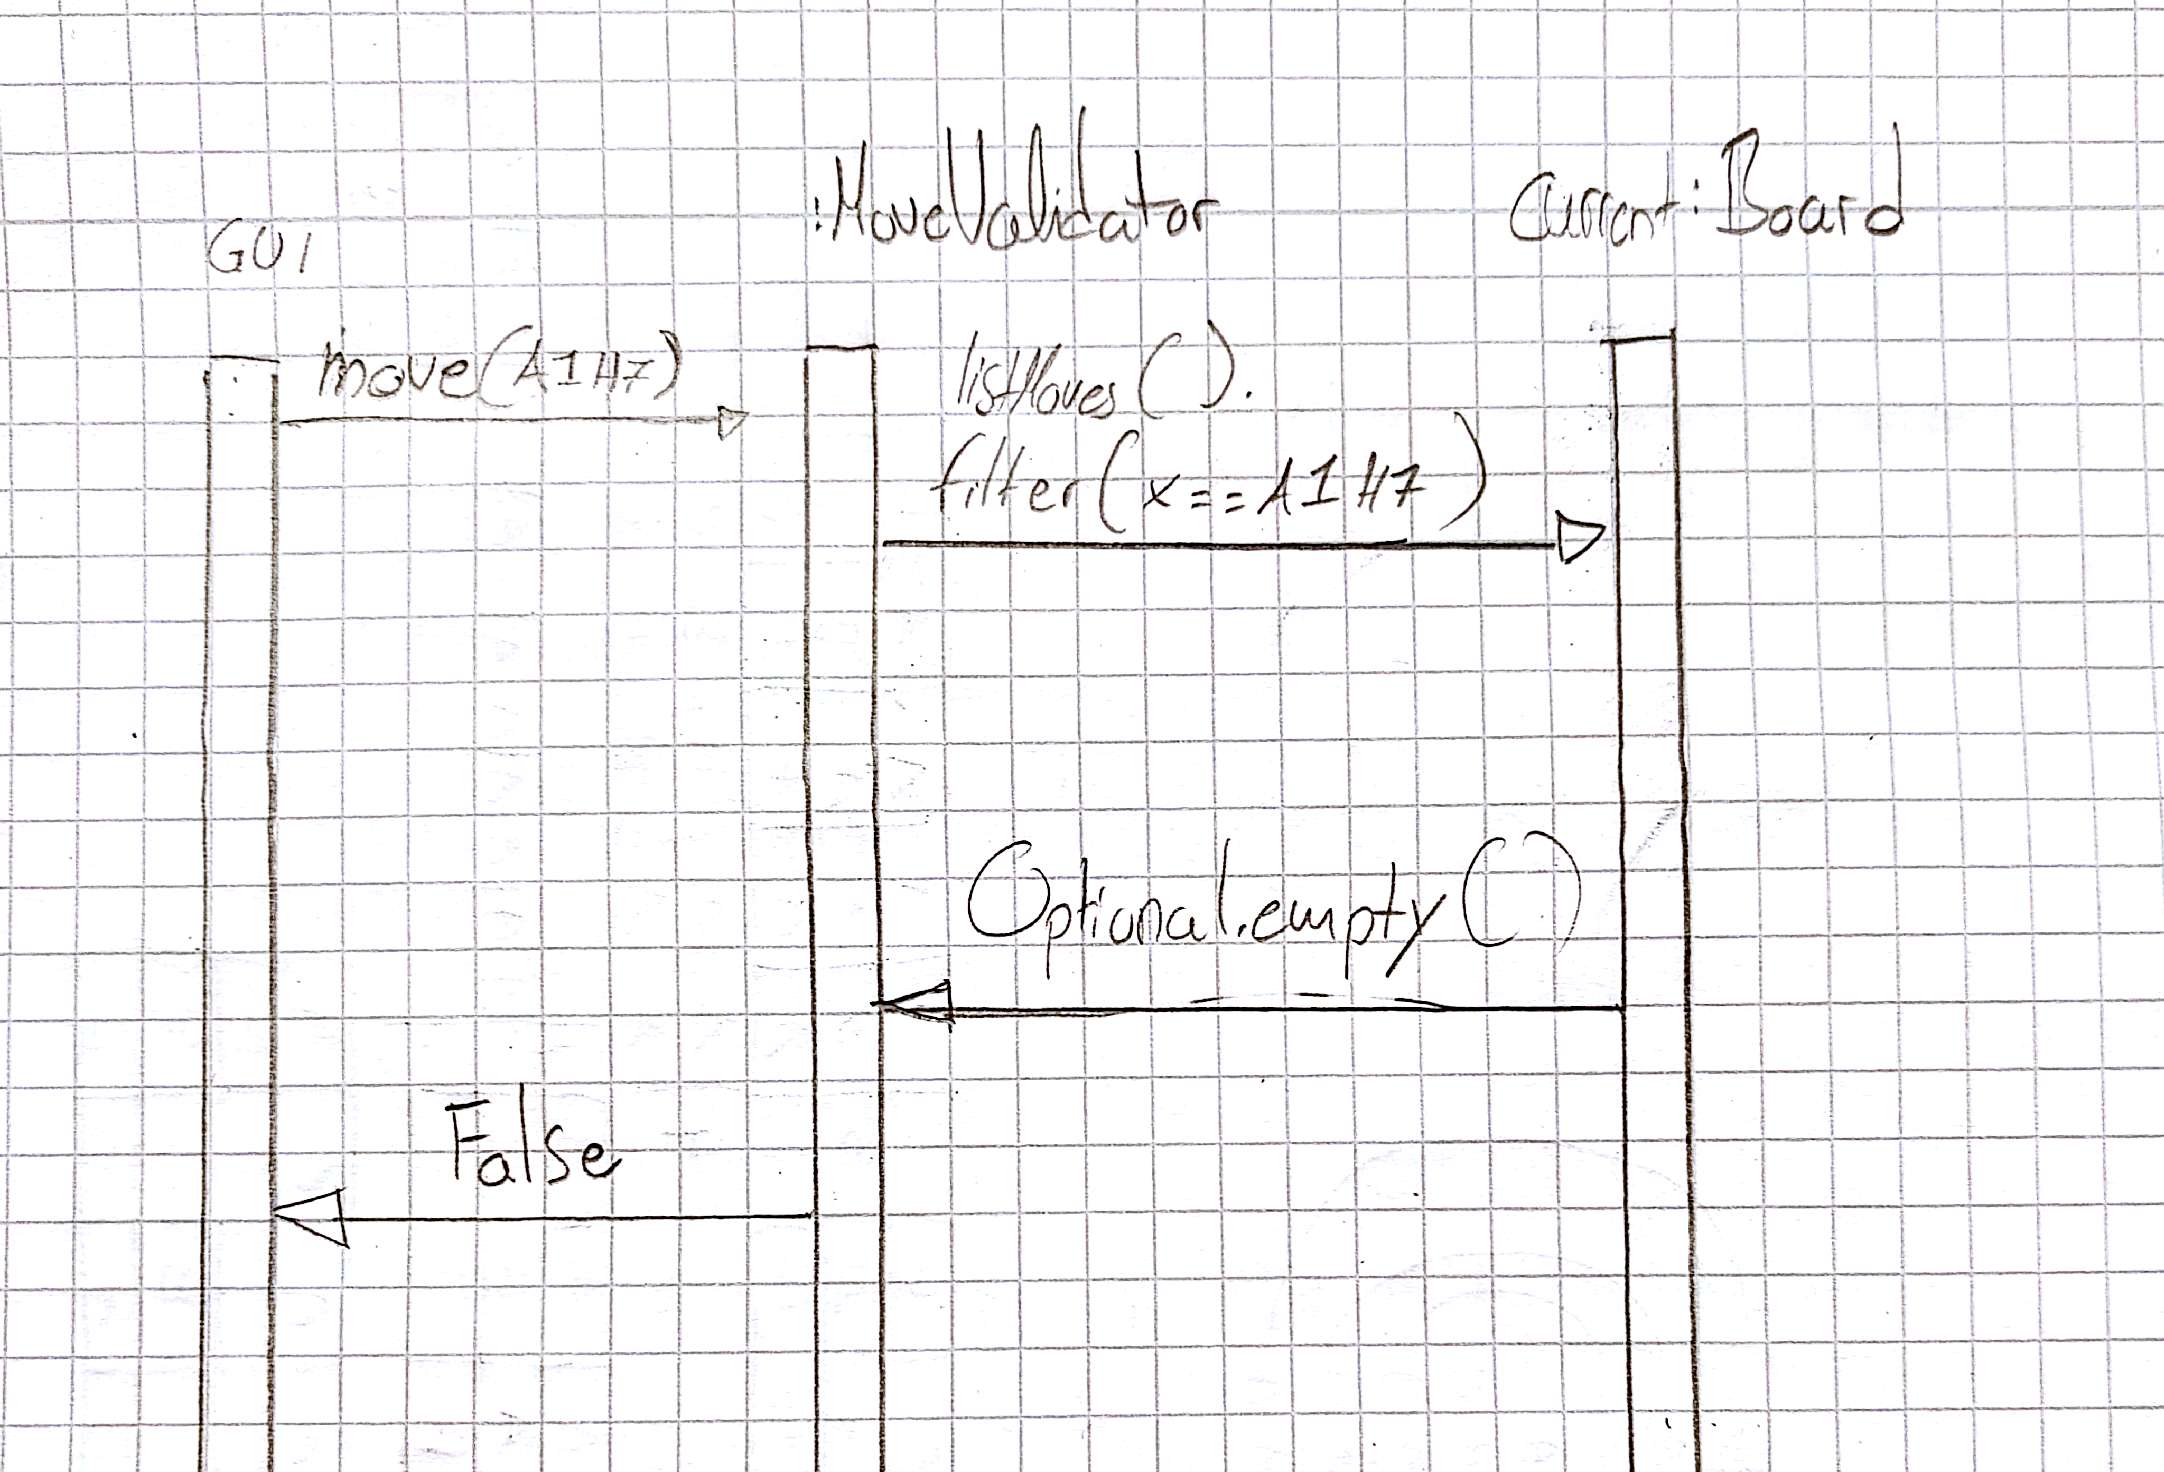 GUI
:MoveValidator
Current:Board
move(A1H7)
listMoves().
filter(x==A1H7)
Optional.empty()
False